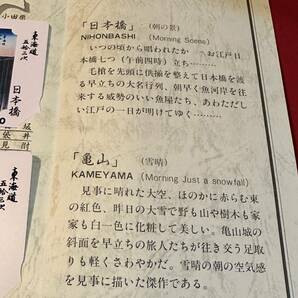 小田県
東海道
五拾三次
日本橋
「日本橋」(朝の景)
NIHONBASHI (Morning Scene)
いつの頃から唱われたか お江戸日
本橋七つ(午前四時)立ち……
毛槍を先頭に供揃を整えて日本橋を渡
る早立ちの大名行列、朝早く魚河岸を往
き来する威勢のいい魚屋たち、あわただし
い江戸の一日が明けてゆく。
坂
井
張
尉
見
東海道
五拾三次
「亀山」(雪晴)
KAMEYAMA (Morning Just a snowfall)
見事に晴れた大空、ほのかに赤らむ東
の紅色、昨日の大雪で野も山や樹木も家
家も白一色に化粧して美しい。亀山城の
斜面を早立ちの旅人たちが往き交う足取
りも軽くさわやかだ。雪晴の朝の空気感
を見事に描いた傑作である。